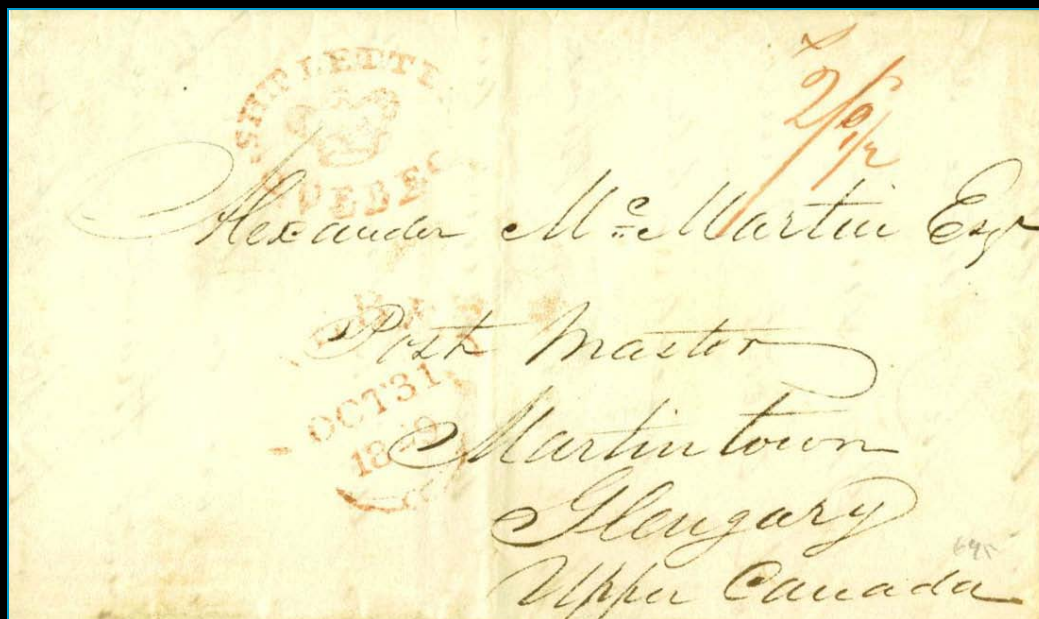 SHIP LETTE
QUEBEC
Alexander Mc Martin Esqr
Post Master
OCT 31
Martintown
Glengary
Upper Canada